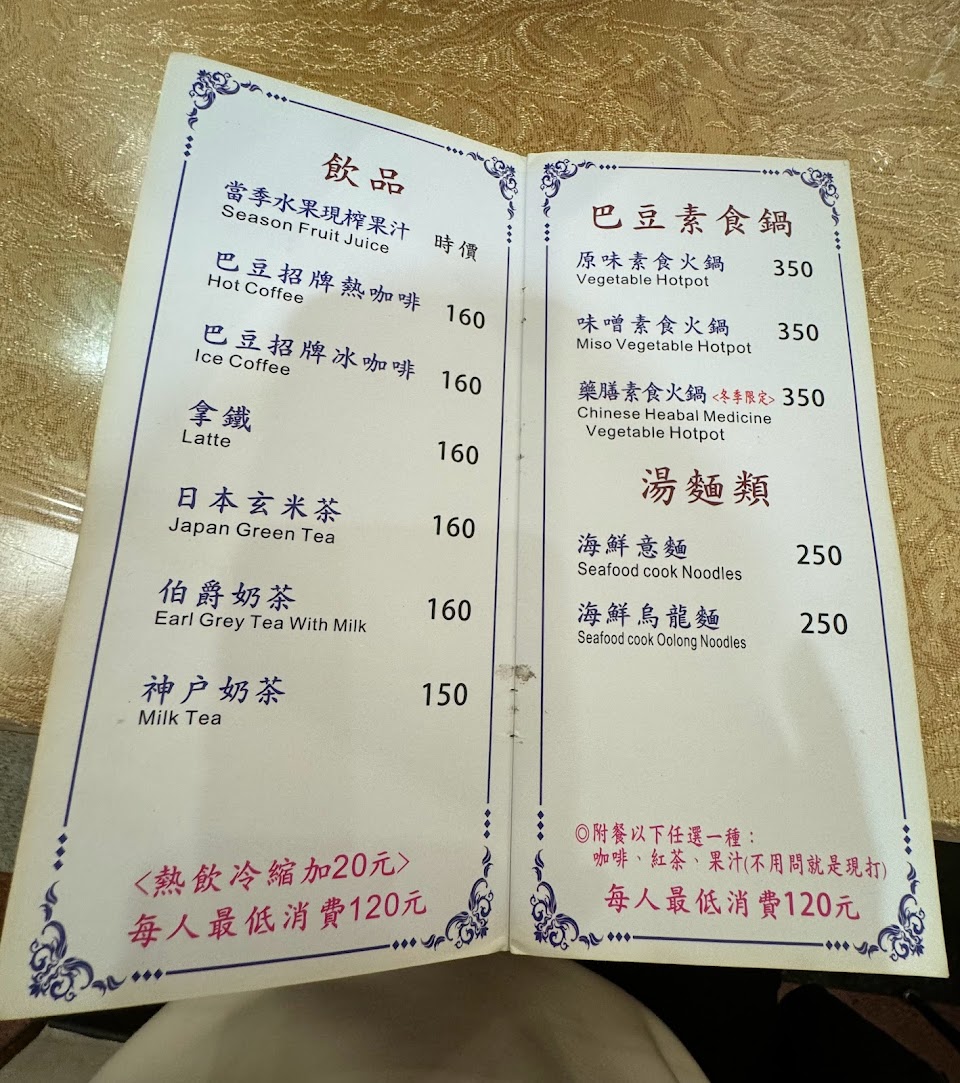 飲品
當季水果現榨果汁 時價
Season Fruit Juice
巴豆招牌熱咖啡 160
Hot Coffee
巴豆招牌冰咖啡 160
Ice Coffee
拿鐵 160
Latte
日本玄米茶 160
Japan Green Tea
伯爵奶茶 160
Earl Grey Tea With Milk
神户奶茶 150
Milk Tea
<熱飲冷縮加20元>
每人最低消費120元
巴豆素食鍋
原味素食火鍋 350
Vegetable Hotpot
味噌素食火鍋 350
Miso Vegetable Hotpot
藥膳素食火鍋<冬季限定> 350
Chinese Heabal Medicine
Vegetable Hotpot
湯麵類
海鮮意麵 250
Seafood cook Noodles
海鮮烏龍麵 250
Seafood cook Oolong Noodles
◎附餐以下任選一種：
咖啡、紅茶、果汁(不用問就是現打)
每人最低消費120元